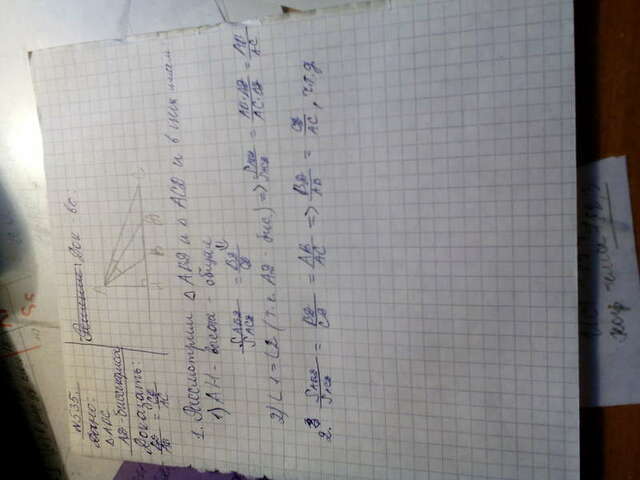 №535.
Дано:
△ABC
AD - биссектриса
Доказать:
BD/AB = CD/AC
Док - во:
1. Рассмотрим △ABD и △ACD и в них
1) AH - высота - общая
S ABD / S ACD = BD / CD
2) ∠1 = ∠2 (т.к AD - бис.) => S ABD / S ACD = AB · AD / AC · AD = AB / AC
2. S ABD / S ACD = BD / CD = AB / AC => BD / AB = CD / AC, ч.т.д